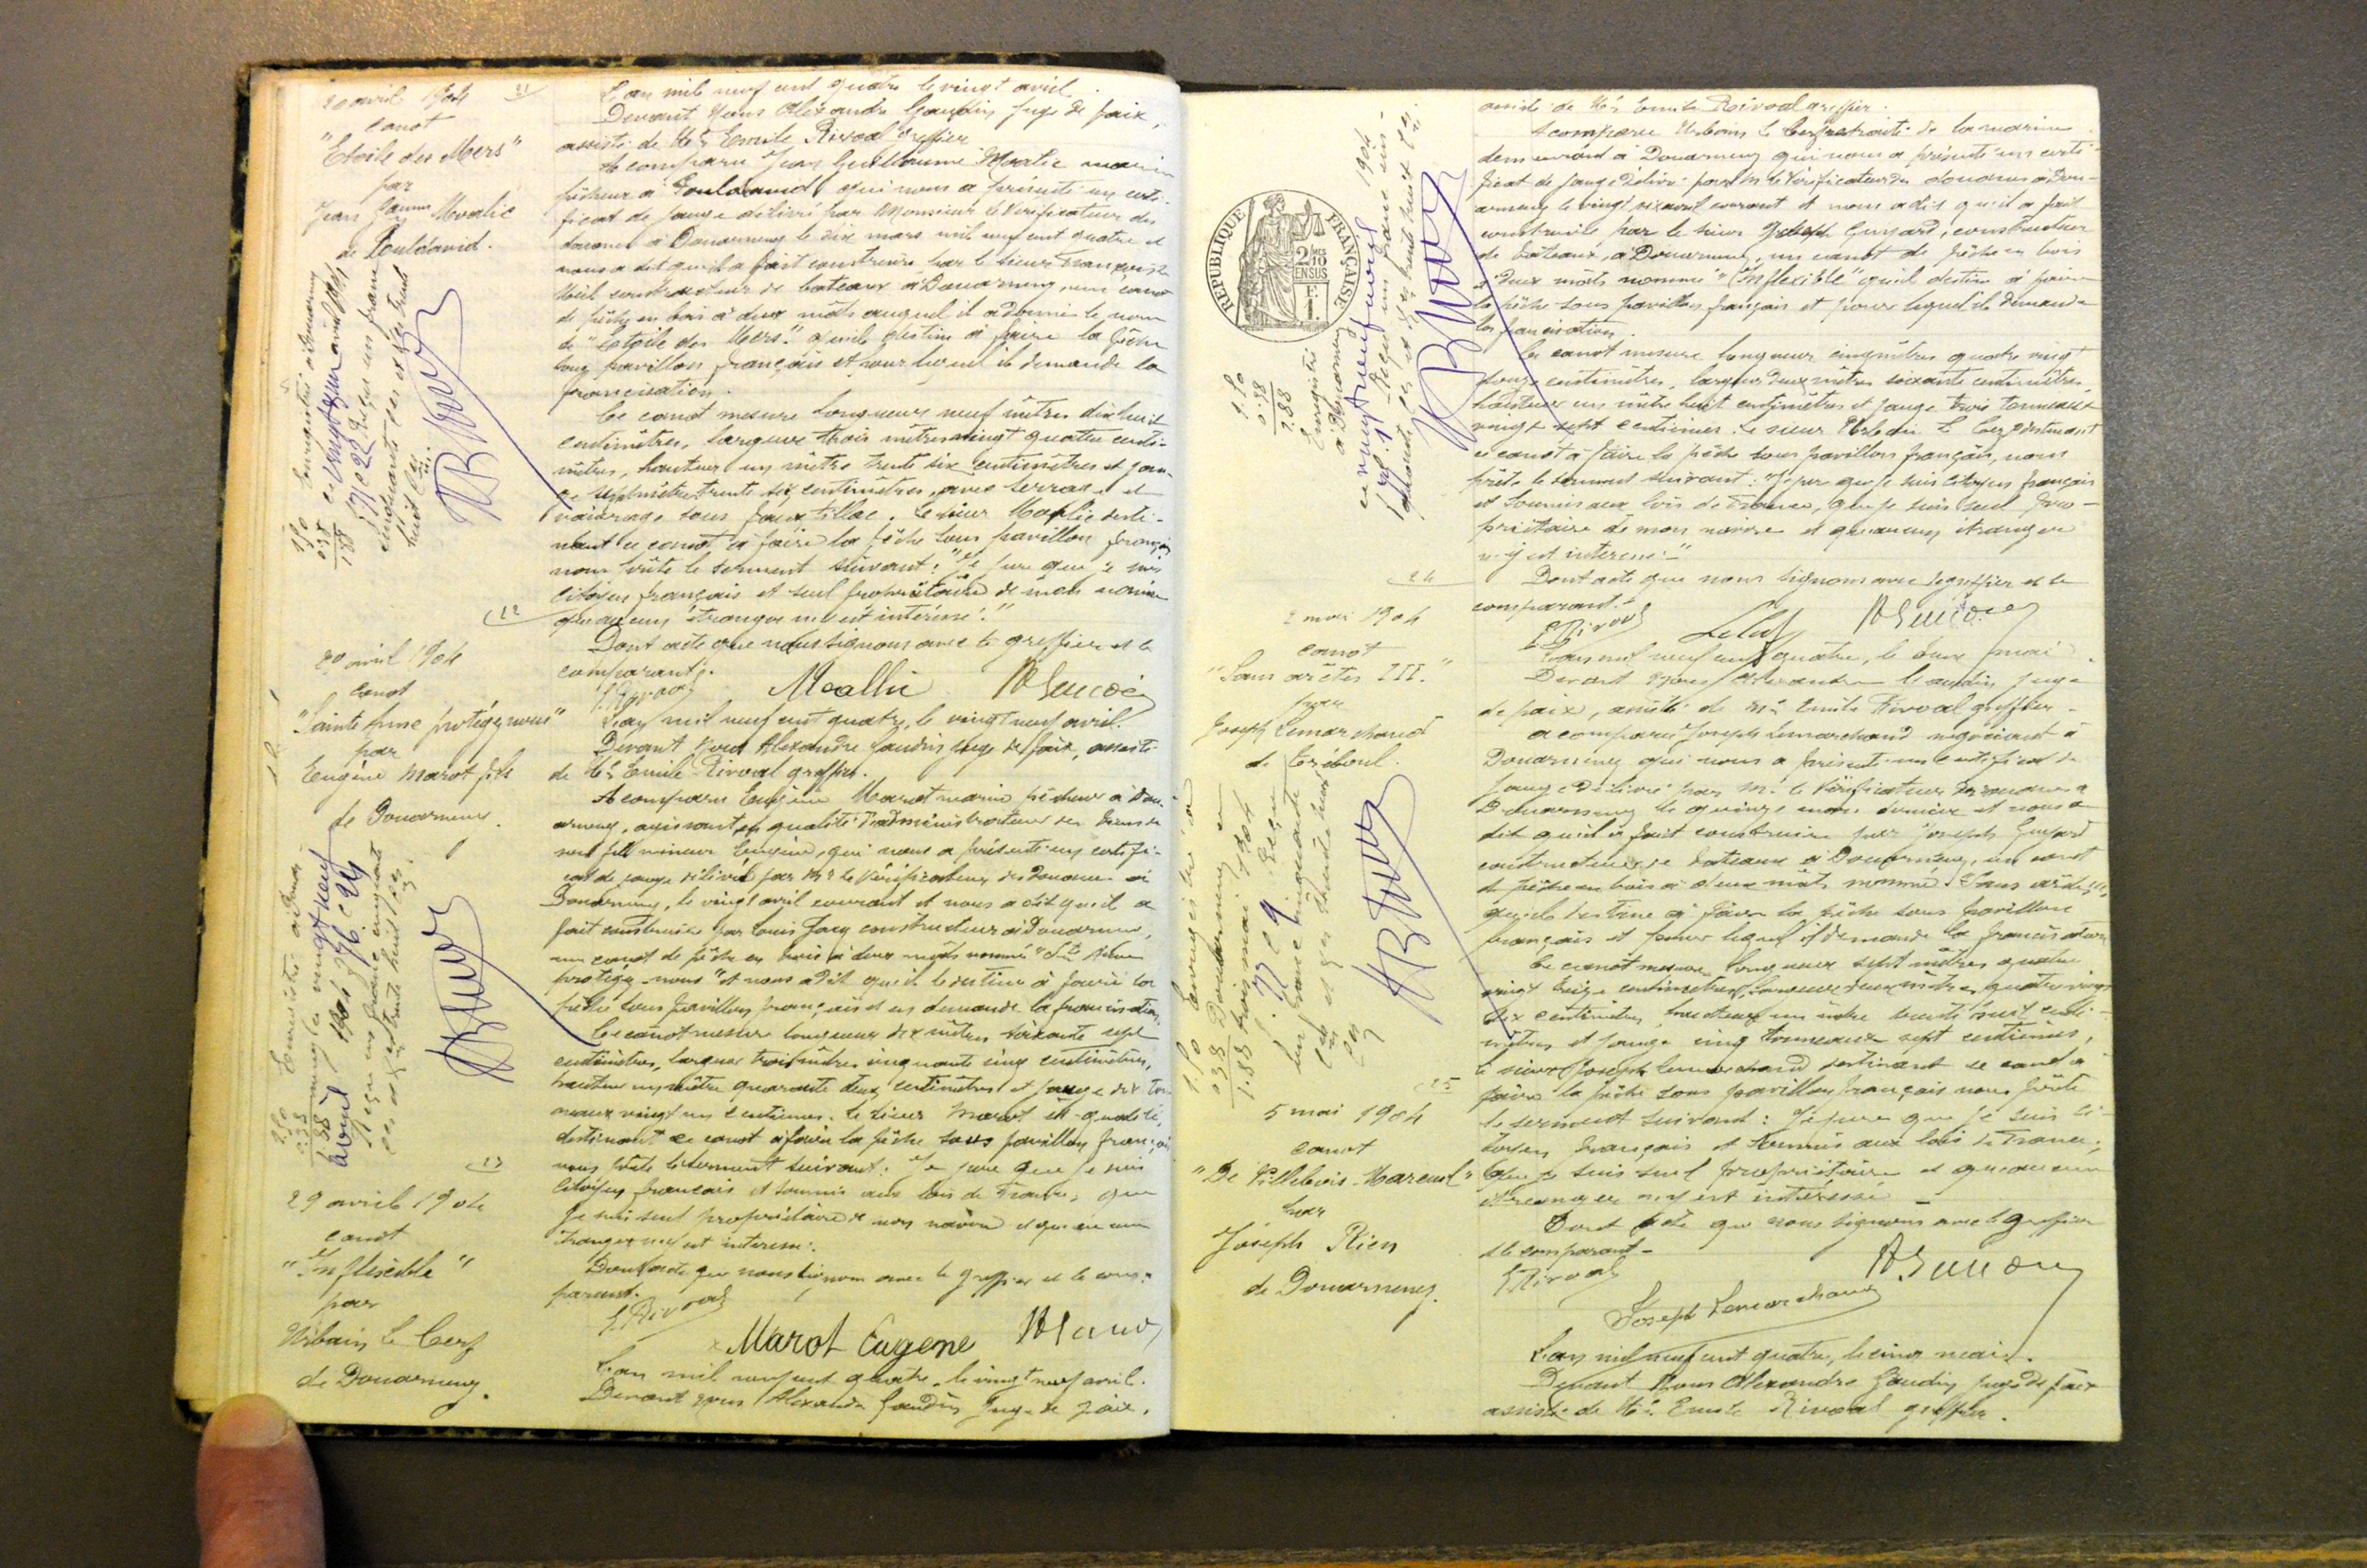 20 avril 1904
canot
"Etoile des Mers"
par
Jean Gaume Moalic
de Pouldavid.
21
L'an mil neuf cent quatre le vingt avril.
Devant Nous Alexandre Gaudin Juge de paix,
assisté de Me Emile Rivoal Greffier
A comparu Jean Guillaume Moalic marin
pêcheur à Pouldavid, qui nous a présenté un certi-
ficat de jauge délivré par Monsieur le Vérificateur des
douanes à Douarnenez le dix mars mil neuf cent quatre et
nous a dit qu'il a fait construire par le sieur François
constructeur de bateaux à Douarnenez, un canot
de pêche en bois à deux mâts auquel il a donné le nom
de "Etoile des Mers" qu'il destine à faire la pêche
sous pavillon français et pour lequel il demande la
francisation.
Ce canot mesure longueur neuf mètres dix huit
centimètres, largeur trois mètres vingt quatre centi-
mètres, hauteur un mètre trente six centimètres et jau-
ge trente six centimètres, avec
vaigrage sous faux tillac. Le sieur Moalic desti-
nant ce canot à faire la pêche sous pavillon français
nous prête le serment suivant: "Je jure que je suis
citoyen français et seul propriétaire de mon navire
qu'aucun étranger n'y est intéressé."
Dont acte que nous signons avec le greffier et le
comparant.
E. Rivoal Moallic
1,50
0,38
1,88
Enregistré à Douarnenez
avril 1904
Reçu un franc
cinquante ces et dxes trente
huit ces
22
29 avril 1904
canot
"Sainte Anne protégez nous"
par
Eugène Marot fils
de Douarnenez.
L'an mil neuf cent quatre, le vingt neuf avril.
Devant Nous Alexandre Gaudin juge de paix, assisté
de Me Emile Rivoal greffier.
A comparu Eugène Marot marin pêcheur à Dou-
arnenez, agissant en qualité d'administrateur des biens de
son fils mineur Eugène, qui nous a présenté un certifi-
cat de jauge délivré par Mr le Vérificateur des Douanes à
Douarnenez, le vingt avril courant et nous a dit qu'il a
fait construire par Louis Jacq constructeur à Douarnenez,
un canot de pêche en bois à deux mâts nommé "Ste Anne
protégez-nous" et nous a dit qu'il le destine à faire la
pêche sous pavillon français et en demande la francisation.
Ce canot mesure longueur dix mètres soixante sept
centimètres, largeur trois mètres cinquante cinq centimètres,
hauteur un mètre quarante deux centimètres et jauge dix ton-
neaux vingt un centièmes. Le sieur Marot ès-qualité,
destinant ce canot à faire la pêche sous pavillon français
nous prête le serment suivant: Je jure que je suis
citoyen français et soumis aux lois de France, que
je suis seul propriétaire de mon navire et qu'aucun
étranger n'y est intéressé.
Dont acte que nous signons avec le greffier et le com-
parant.
E. Rivoal
Marot Eugene
1,50
0,38
1,88
Enregistré à Douar-
nenez le vingt neuf
avril 1904 f. 76 c. 24
Reçu un franc cinquante
ces et dxes trente huit ces
23
29 avril 1904
canot
"Inflexible"
par
Urbain Le Cerf
de Douarnenez.
L'an mil neuf cent quatre, le vingt neuf avril.
Devant nous Alexandre Gaudin Juge de paix,
assisté de Me Emile Rivoal greffier.
A comparu Urbain Le Cerf retraité de la marine
demeurant à Douarnenez qui nous a présenté un certi-
ficat de jauge délivré par Mr le Vérificateur des douanes à Dou-
arnenez le vingt six avril courant et nous a dit qu'il a fait
construire par le sieur Joseph Guyard, constructeur
de bateaux, à Douarnenez, un canot de pêche en bois
à deux mâts nommé "Inflexible" qu'il destine à faire
la pêche sous pavillon français et pour lequel il demande
la francisation.
Ce canot mesure longueur cinq mètres quatre vingt
douze centimètres, largeur deux mètres soixante centimètres,
hauteur un mètre huit centimètres et jauge trois tonneaux
vingt sept centièmes. Le sieur Urbain Le Cerf destinant
ce canot à faire la pêche sous pavillon français, nous
prête le serment suivant: "Je jure que je suis citoyen français
et soumis aux lois de France, que je suis seul pro-
priétaire de mon navire et qu'aucun étranger
n'y est intéressé."
Dont acte que nous signons avec le greffier et le
comparant.
E. Rivoal
REPUBLIQUE FRANÇAISE
2/10
EN SUS
1 F.
1.50
0.38
1.88
Enregistré
à Douarnenez
le vingt neuf avril 1904
Reçu un franc cin-
quante ces et dxes trente huit ces
24
2 mai 1904
canot
"Sans arêtes III."
par
Joseph Lemarchand
de Tréboul.
L'an mil neuf cent quatre, le deux mai.
Devant Nous Alexandre Gaudin juge
de paix, assisté de Me Emile Rivoal greffier.
A comparu Joseph Lemarchand négociant à
Douarnenez qui nous a présenté un certificat de
jauge délivré par Mr le Vérificateur des douanes à
Douarnenez le quinze mars dernier et nous a
dit qu'il a fait construire par Joseph Guyard
constructeur de bateaux à Douarnenez, un canot
de pêche en bois à deux mâts nommé "Sans arêtes III",
qu'il destine à faire la pêche sous pavillon
français et pour lequel il demande la francisation
Ce canot mesure longueur sept mètres quatre
vingt treize centimètres, largeur deux mètres quatre vingt
dix centimètres, hauteur un mètre trente huit centi-
mètres et jauge cinq tonneaux sept centièmes,
le sieur Joseph Lemarchand destinant ce canot à
faire la pêche sous pavillon français nous prête
le serment suivant: Je jure que je suis ci-
toyen français et soumis aux lois de France,
que je suis seul propriétaire et qu'aucun
étranger n'y est intéressé
Dont acte que nous signons avec le greffier
et le comparant-
E. Rivoal
Joseph Lemarchand
1.50
0.38
1.88
Enregistré à
Douarnenez
trois mai 1904
f. 77 c. 9 Reçu
un franc cinquante
ces et dxes trente huit
ces
25
5 mai 1904
canot
"De Villebois-Mareuil"
par
Joseph Rien
de Douarnenez.
L'an mil neuf cent quatre, le cinq mai.
Devant Nous Alexandre Gaudin juge de paix
assisté de Me Emile Rivoal greffier.